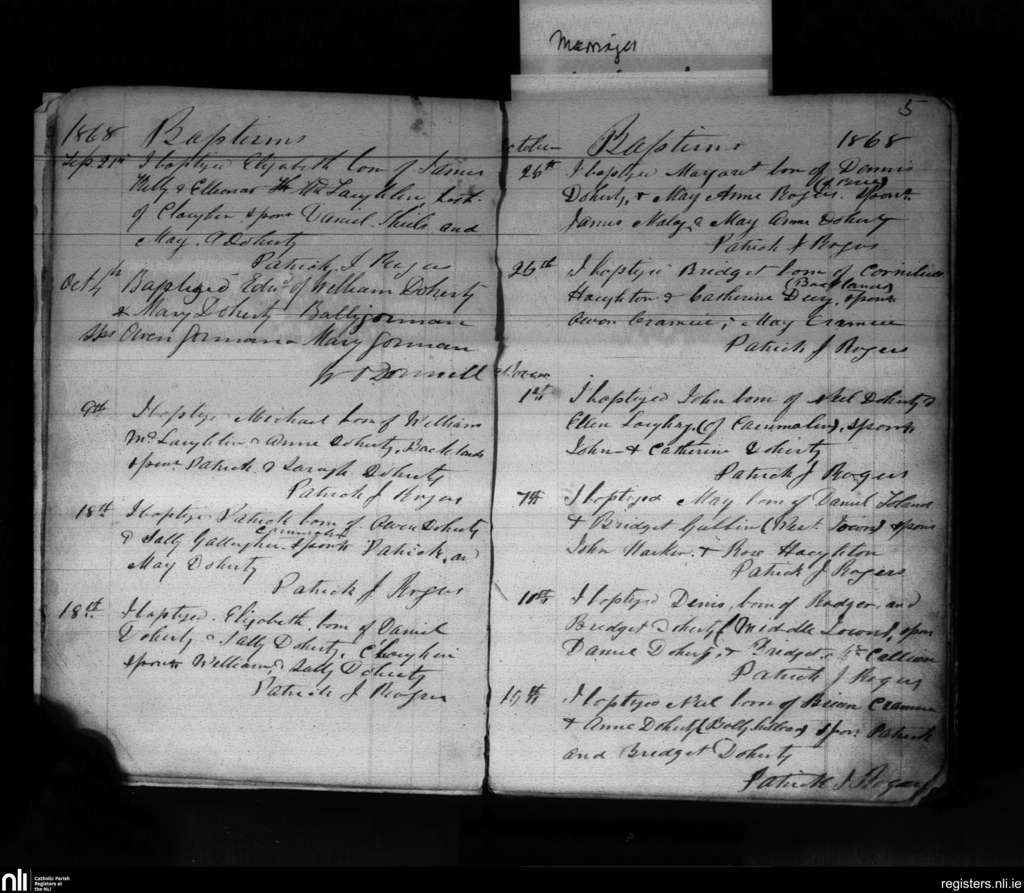 Marriages
1868 Baptisms
Sep. 21st I baptized Elizabeth born of James
Kelly & Elleonor Mc Laughlin,
of Claughin spons Daniel Shiels and
May A Doherty
Patrick J Rogers
Oct 4th Baptized Edwd of William Doherty
& Mary Doherty Balligorman
Sps Owen Gorman & Mary Gorman
O'Donnell
9th I baptize Michael born of William
McLaughlin & Anne Doherty, Backlands
spons Patrick & Saragh Doherty
Patrick J Rogers
18th I baptize Patrick born of Owen Doherty
& Sally Gallagher spons Patrick, and
May Doherty
Patrick J Rogers
18th I baptized Elizabeth born of Daniel
Doherty & Sally Doherty, Claughin
spons William & Sally Doherty
Patrick J Rogers
5
October Baptisms 1868
25th I baptize Margaret born of Dennis
Doherty, & May Anne Rogers spons
James Maley & May Anne Doherty
Patrick J Rogers
26th I baptize Bridget born of Cornilius
(Backlands)
Haughton & Catherine Deery, spons
Owen Crampsie, & May Crampsie
Patrick J Rogers
1st I baptized John born of Neil Doherty &
Ellen Loughrey (of Carrimaley) spons
John & Catherine Doherty
Patrick J Rogers
7th I baptized May born of Daniel Toland
& Bridget Gubbin (West Town) spons
John Harkin & Rose Haughton
Patrick J Rogers
10th I baptized Denis, born of Rodger, and
Bridget Doherty (Middle Town), spon
Daniel Doherty, & Bridget Mc Callion
Patrick J Rogers
15th I baptized Neil born of Brian Crampsie
& Anne Doherty spon. Patrick
and Bridget Doherty
Patrick J. Rogers
nli
Catholic Parish
Registers at
the NLI
registers.nli.ie